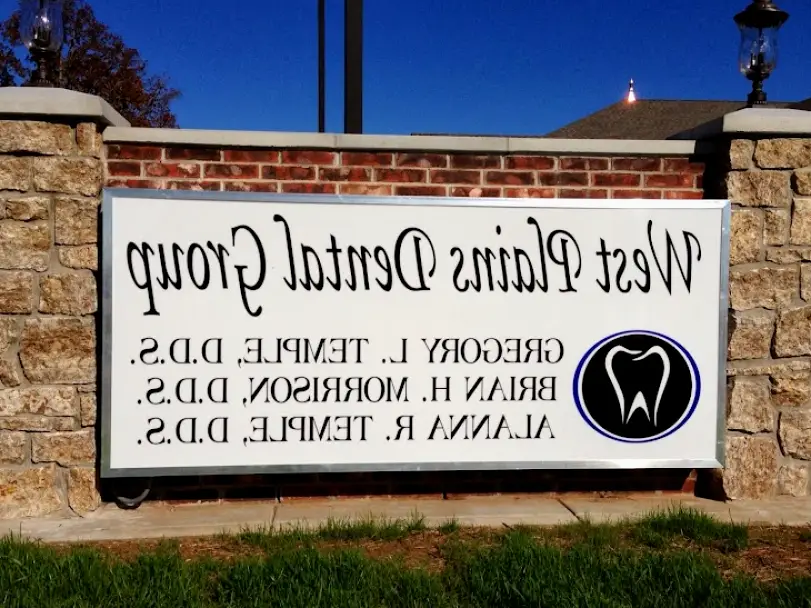 West Plains Dental Group
GREGORY L. TEMPLE, D.D.S.
BRIAN H. MORRISON, D.D.S.
ALANNA R. TEMPLE, D.D.S.